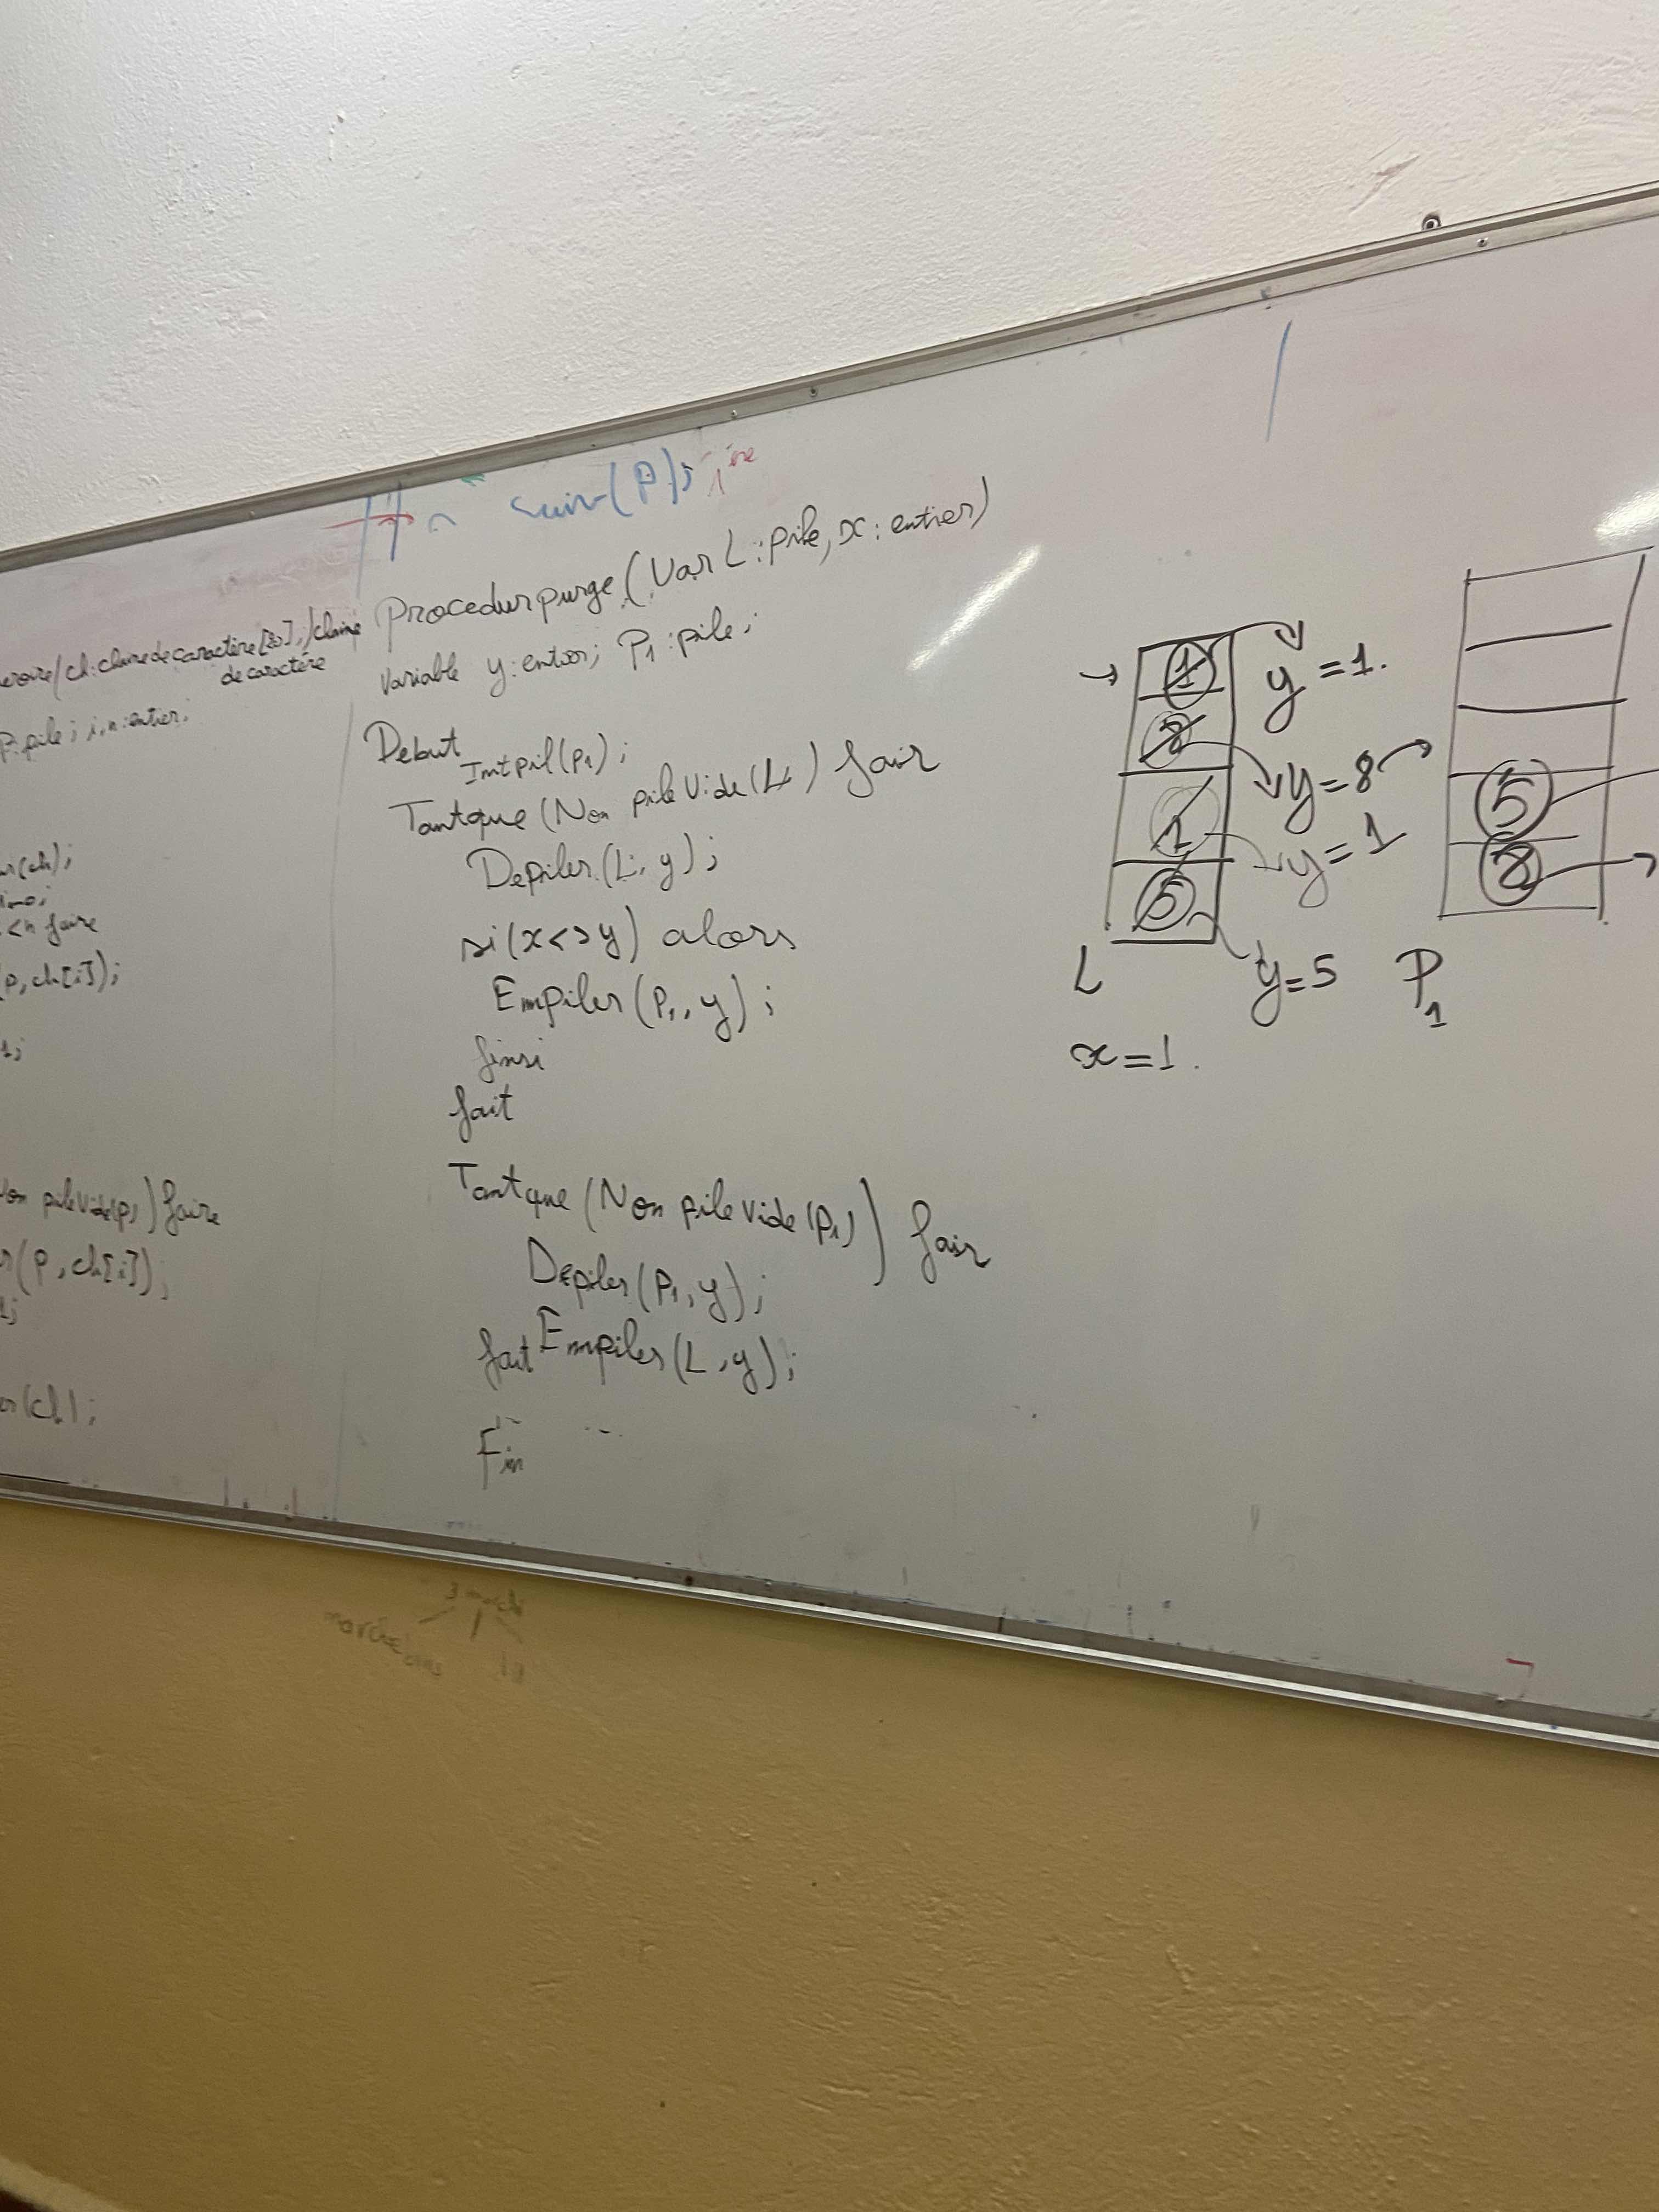 suiv(P); 1ère
ch: chaine de caractère [20]; / chaine
de caractère
P: pile; i, n: entier;
(ch);
<n faire
(P, ch[i]);
1;
Non pilevide(P)) faire
(P, ch[i]);
1;
(ch);
Procedur purge (Var L: pile, x: entier)
Variable y: entier; P1: pile;
Debut
Intpil(P1);
Tantque (Non pile Vide (L)) fair
Depiler (L, y);
si (x<>y) alors
Empiler (P1, y);
finsi
fait
Tantque (Non pile vide (P1)) fair
Depiler (P1, y);
fait Empiler (L, y);
Fin
1 y=1.
8 y=8
1 y=1
5 y=5
L
x=1.
5
8
P1